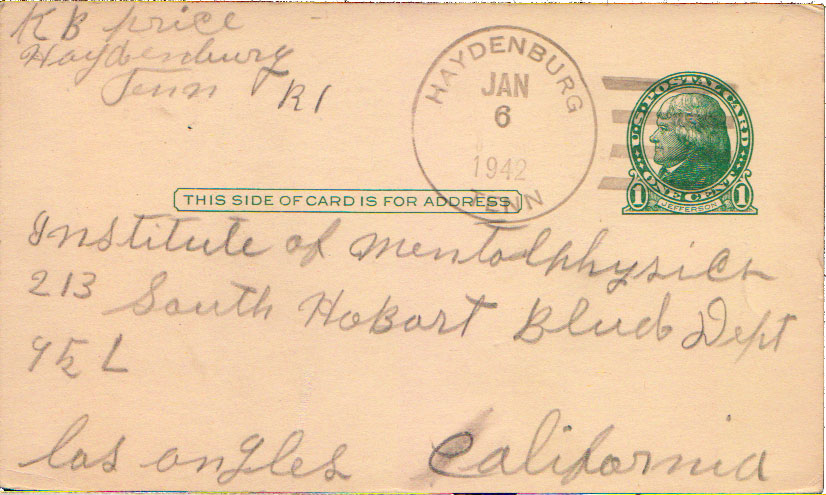 KB price
Haydenburg
Tenn R1
HAYDENBURG
JAN
6
1942
TENN
U.S. POSTAL CARD
ONE CENT
1 JEFFERSON 1
THIS SIDE OF CARD IS FOR ADDRESS
Institute of mentalphysics
213 South HoBart Blud Dept
95 L
los angles California